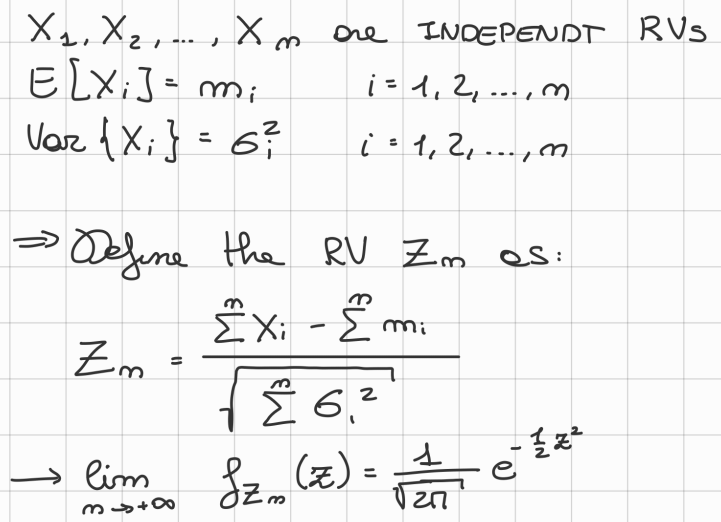 X₁, X₂, ..., Xₙ are INDEPENDT RVs
E[Xᵢ] = mᵢ i = 1, 2, ..., n
Var{Xᵢ} = σᵢ² i = 1, 2, ..., n
⇒ Define the RV Zₙ as:
Zₙ = (∑ⁿ Xᵢ - ∑ⁿ mᵢ) / √(∑ⁿ σᵢ²)
→ lim n→+∞ f_Zₙ (z) = 1/√(2π) e^(-½ z²)